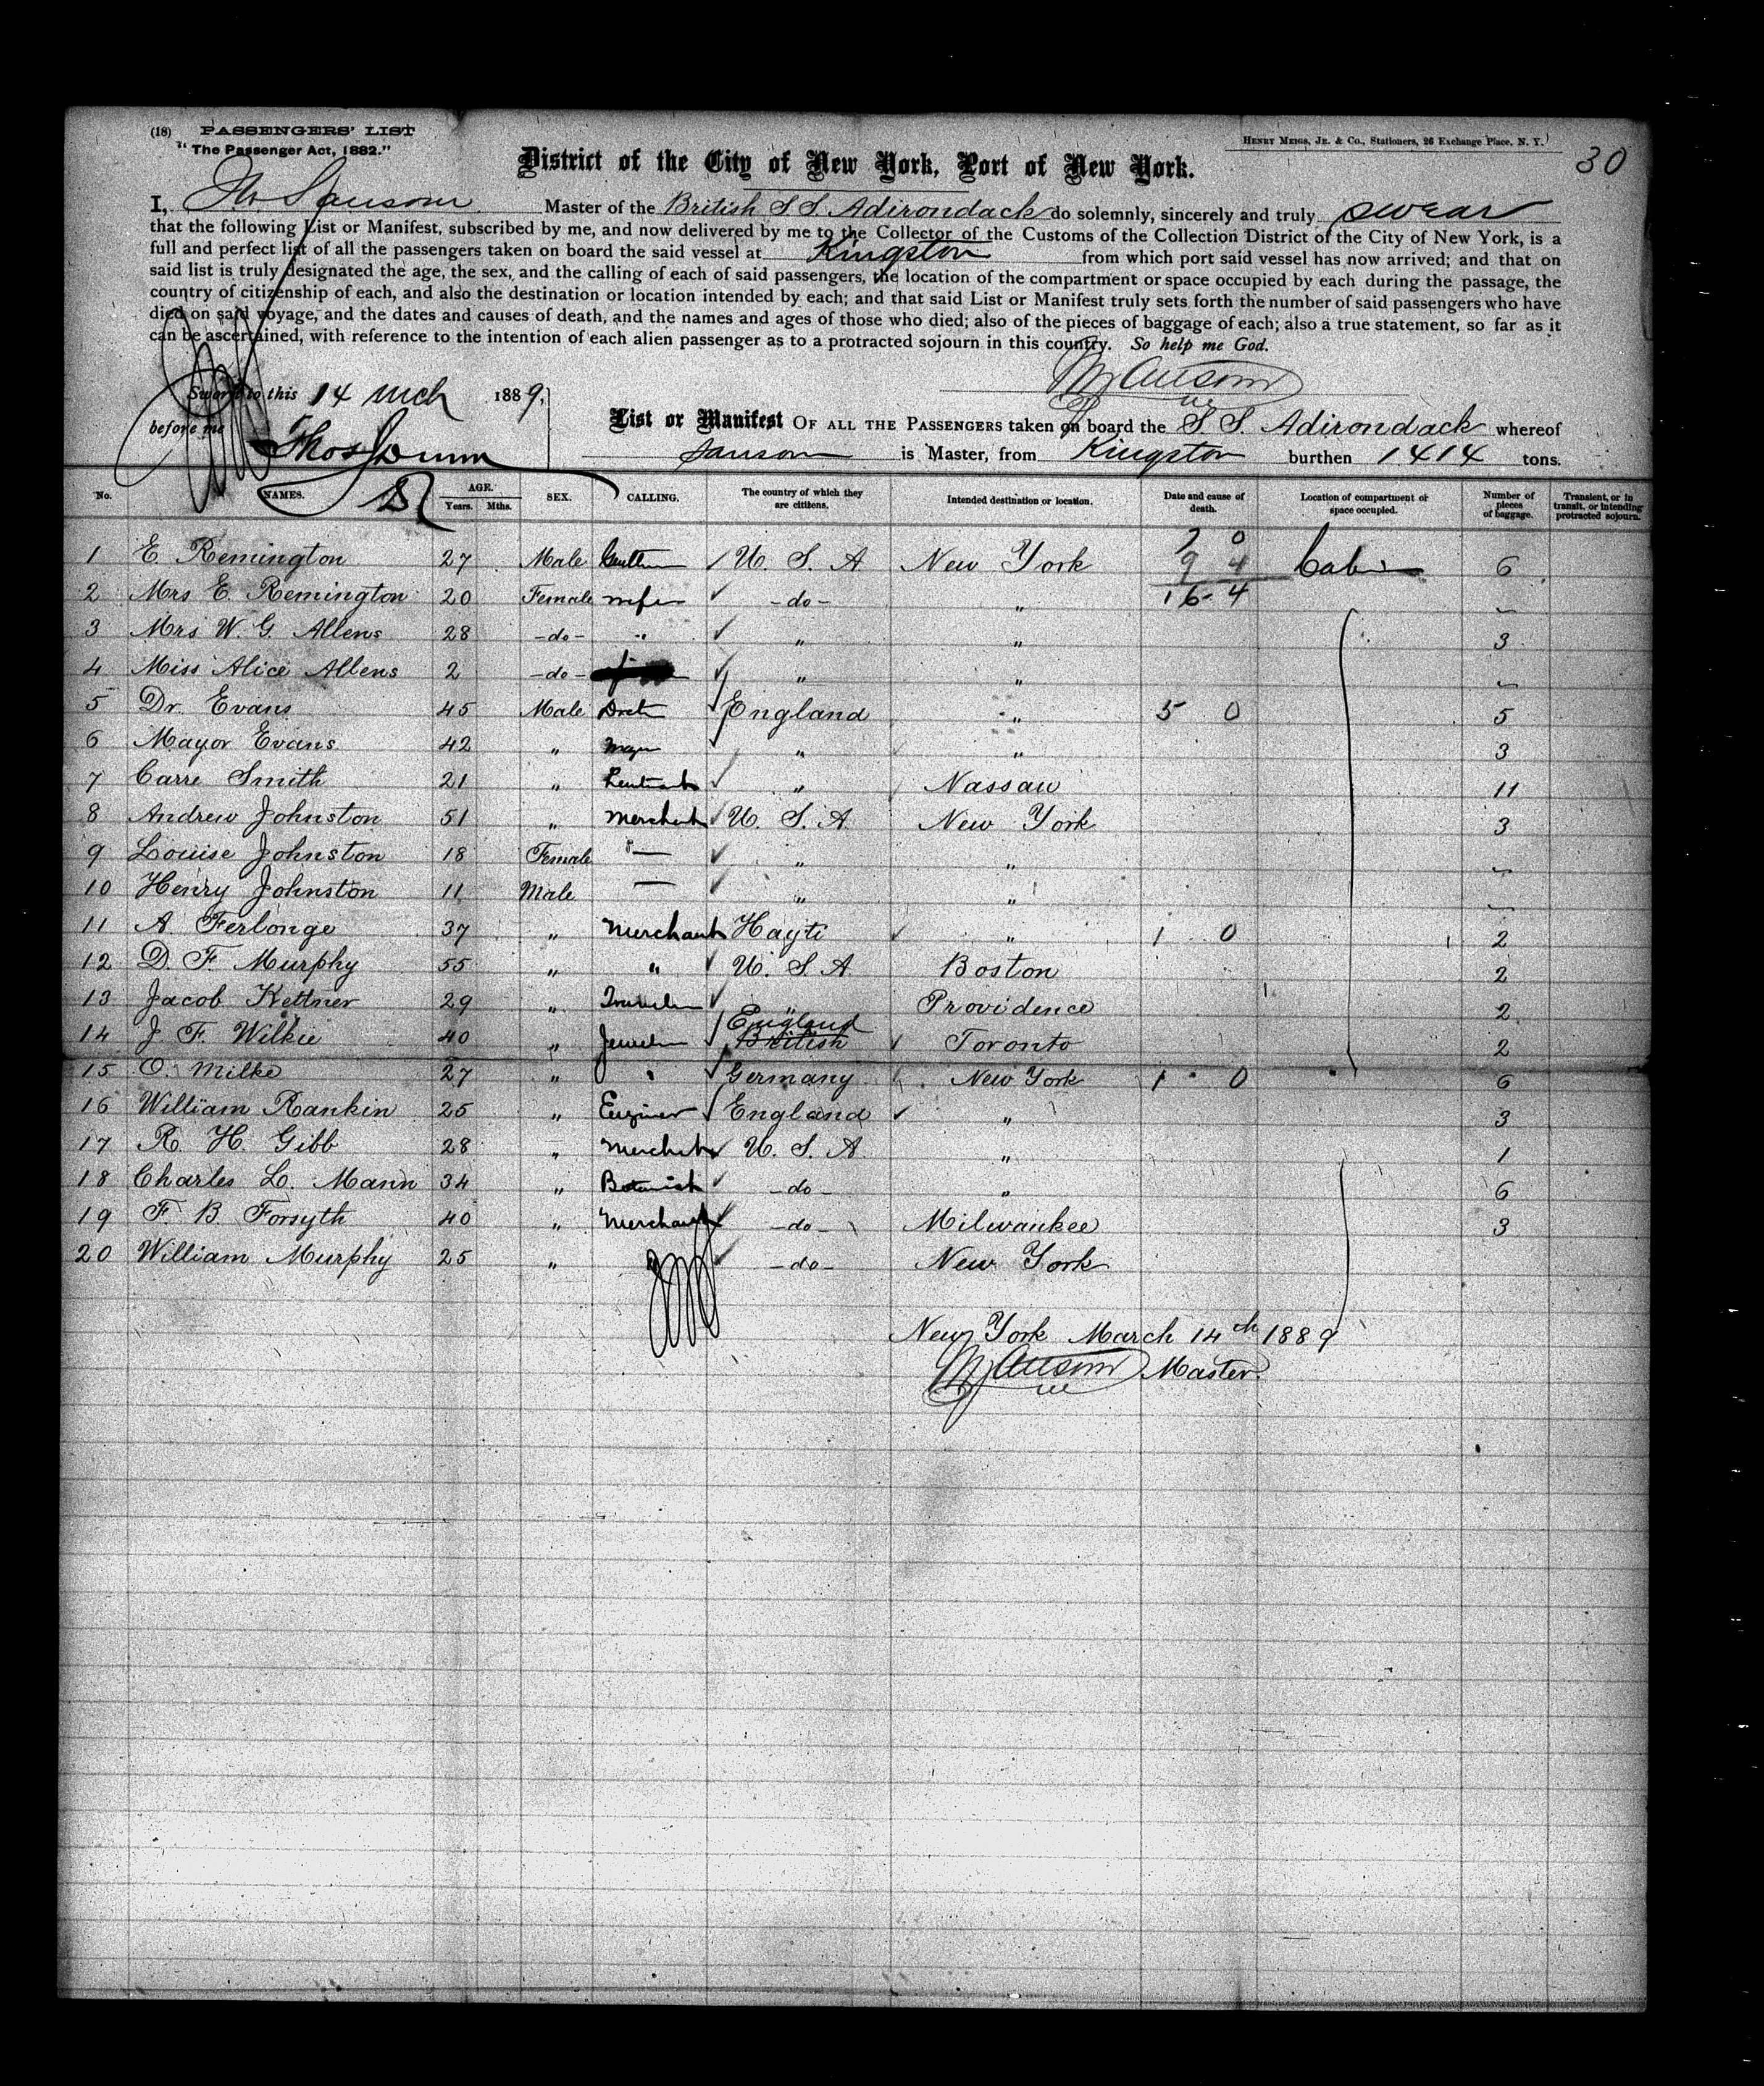 (18) PASSENGERS' LIST
"The Passenger Act, 1882."
HENRY MEIGS, JR. & CO., Stationers, 26 Exchange Place, N. Y.
30
District of the City of New York, Port of New York.
I, Sansom Master of the British S S. Adirondack do solemnly, sincerely and truly swear
that the following List or Manifest, subscribed by me, and now delivered by me to the Collector of the Customs of the Collection District of the City of New York, is a
full and perfect list of all the passengers taken on board the said vessel at Kingston from which port said vessel has now arrived; and that on
said list is truly designated the age, the sex, and the calling of each of said passengers, the location of the compartment or space occupied by each during the passage, the
country of citizenship of each, and also the destination or location intended by each; and that said List or Manifest truly sets forth the number of said passengers who have
died on said voyage, and the dates and causes of death, and the names and ages of those who died; also of the pieces of baggage of each; also a true statement, so far as it
can be ascertained, with reference to the intention of each alien passenger as to a protracted sojourn in this country. So help me God.
Sansom
Sworn to this 14 Mch 1889,
before me Thos Dunn
List or Manifest OF ALL THE PASSENGERS taken on board the S S. Adirondack whereof
Sansom is Master, from Kingston burthen 1414 tons.
No. NAMES. AGE. Years. Mths. SEX. CALLING. The country of which they are citizens. Intended destination or location. Date and cause of death. Location of compartment or space occupied. Number of pieces of baggage. Transient, or in transit, or intending protracted sojourn.
7 0
1 E. Remington 27 Male U. S. A New York 9 4 Cabin 6
2 Mrs E. Remington 20 Female wife -do- " 16-4
3 Mrs W. G. Allens 28 -do- " " " 3
4 Miss Alice Allens 2 -do- " "
5 Dr. Evans 45 Male England " 5 0 5
6 Mayor Evans 42 " " " 3
7 Carre Smith 21 " " Nassau 11
8 Andrew Johnston 51 " Merchant U. S. A. New York 3
9 Louise Johnston 18 Female " "
10 Henry Johnston 11 Male " "
11 A. Ferlonge 37 " Merchant Hayti " 1 0 2
12 D. F. Murphy 55 " " U. S. A Boston 2
13 Jacob Kettner 29 " " Providence 2
14 J F. Wilkie 40 " Jeweler England British Toronto 2
15 O. Milke 27 " " Germany New York 1 0 6
16 William Rankin 25 " Engineer England " 3
17 R. H. Gibb 28 " Merchant U. S. A " 1
18 Charles L. Mann 34 " Botanist -do- " 6
19 F. B Forsyth 40 " Merchant -do- Milwaukee 3
20 William Murphy 25 " -do- New York
New York March 14th 1889
Sansom Master